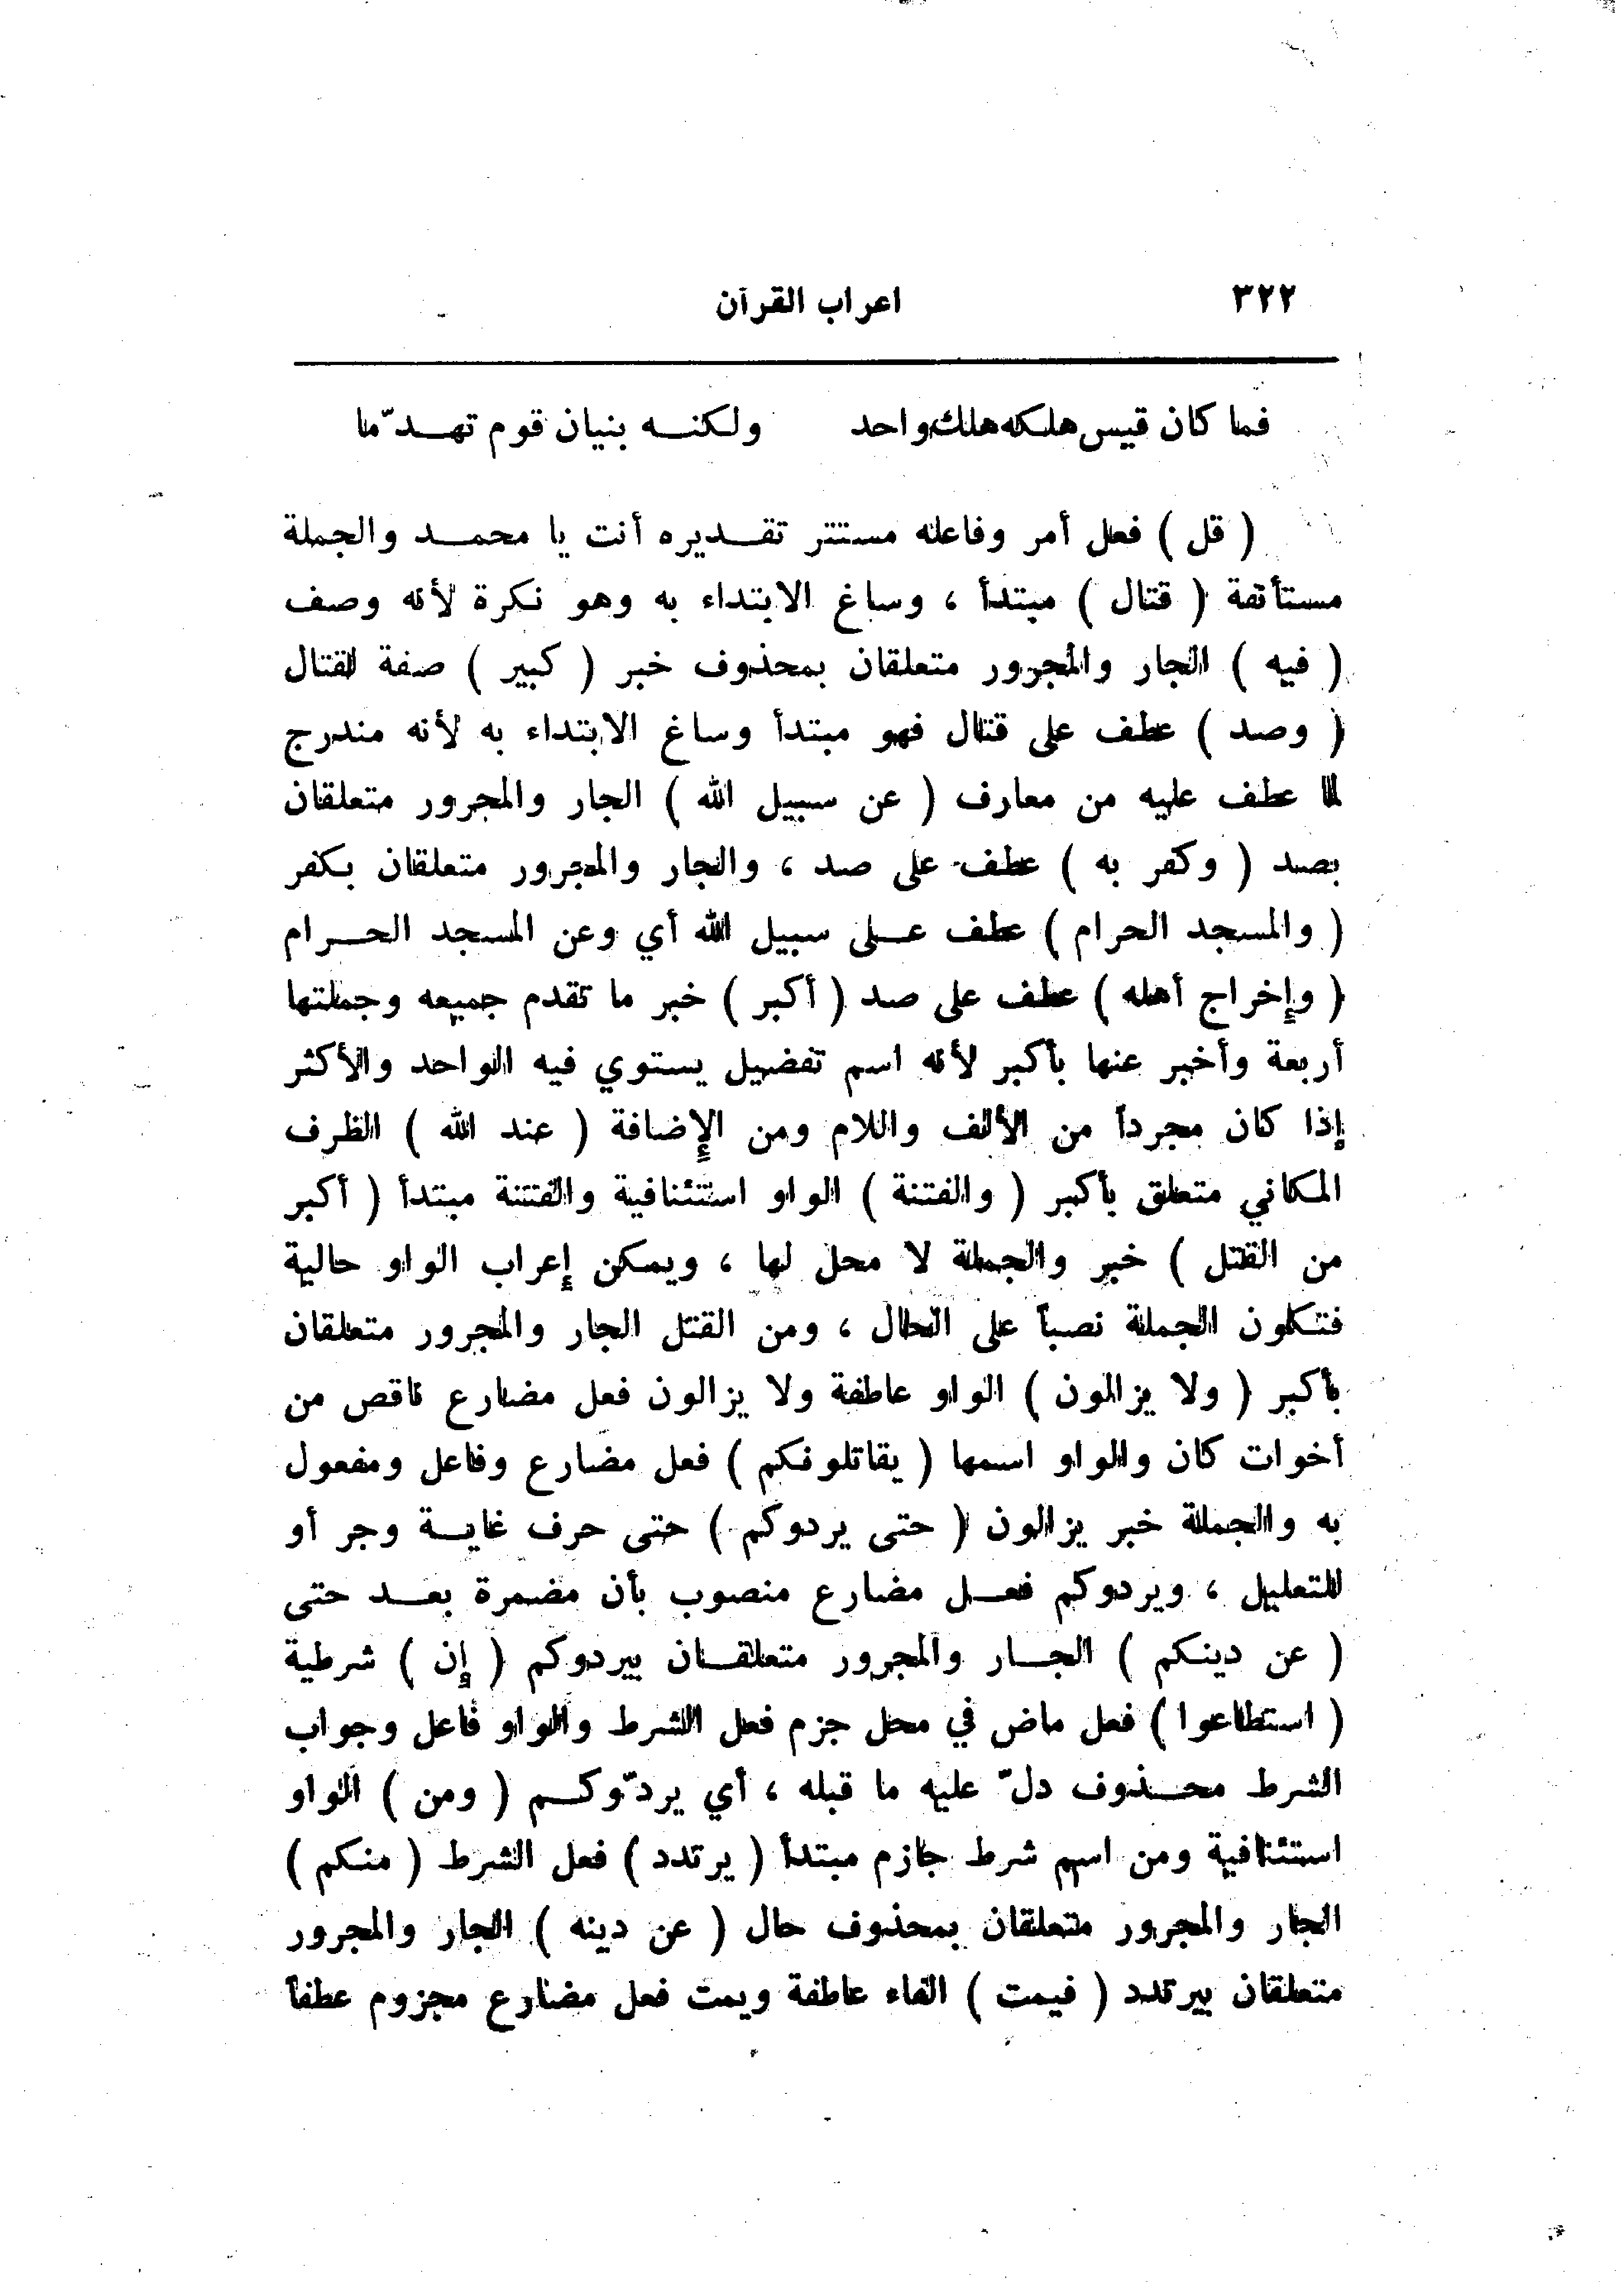 ٣٢٢ اعراب القرآن
فما كان قيس هلكه هلك واحد ولكنه بنيان قوم تهدّما
( قل ) فعل أمر وفاعله مستتر تقديره أنت يا محمد والجملة
مستأنفة ( قتال ) مبتدأ ، وساغ الابتداء به وهو نكرة لأنه وصف
( فيه ) الجار والمجرور متعلقان بمحذوف خبر ( كبير ) صفة لقتال
( وصد ) عطف على قتال فهو مبتدأ وساغ الابتداء به لأنه مندرج
لما عطف عليه من معارف ( عن سبيل الله ) الجار والمجرور متعلقان
بصد ( وكفر به ) عطف على صد ، والجار والمجرور متعلقان بكفر
( والمسجد الحرام ) عطف على سبيل الله أي وعن المسجد الحرام
( وإخراج أهله ) عطف على صد ( أكبر ) خبر ما تقدم جميعه وجملتها
أربعة وأخبر عنها بأكبر لأنه اسم تفضيل يستوي فيه الواحد والأكثر
إذا كان مجرداً من الألف واللام ومن الإضافة ( عند الله ) الظرف
المكاني متعلق بأكبر ( والفتنة ) الواو استئنافية والفتنة مبتدأ ( أكبر
من القتل ) خبر والجملة لا محل لها ، ويمكن إعراب الواو حالية
فتكون الجملة نصباً على الحال ، ومن القتل الجار والمجرور متعلقان
بأكبر ( ولا يزالون ) الواو عاطفة ولا يزالون فعل مضارع ناقص من
أخوات كان والواو اسمها ( يقاتلونكم ) فعل مضارع وفاعل ومفعول
به والجملة خبر يزالون ( حتى يردوكم ) حتى حرف غاية وجر أو
للتعليل ، ويردوكم فعل مضارع منصوب بأن مضمرة بعد حتى
( عن دينكم ) الجار والمجرور متعلقان بيردوكم ( إن ) شرطية
( استطاعوا ) فعل ماض في محل جزم فعل الشرط والواو فاعل وجواب
الشرط محذوف دلّ عليه ما قبله ، أي يردّوكم ( ومن ) الواو
استئنافية ومن اسم شرط جازم مبتدأ ( يرتدد ) فعل الشرط ( منكم )
الجار والمجرور متعلقان بمحذوف حال ( عن دينه ) الجار والمجرور
متعلقان بيرتدد ( فيمت ) الفاء عاطفة ويمت فعل مضارع مجزوم عطفاً